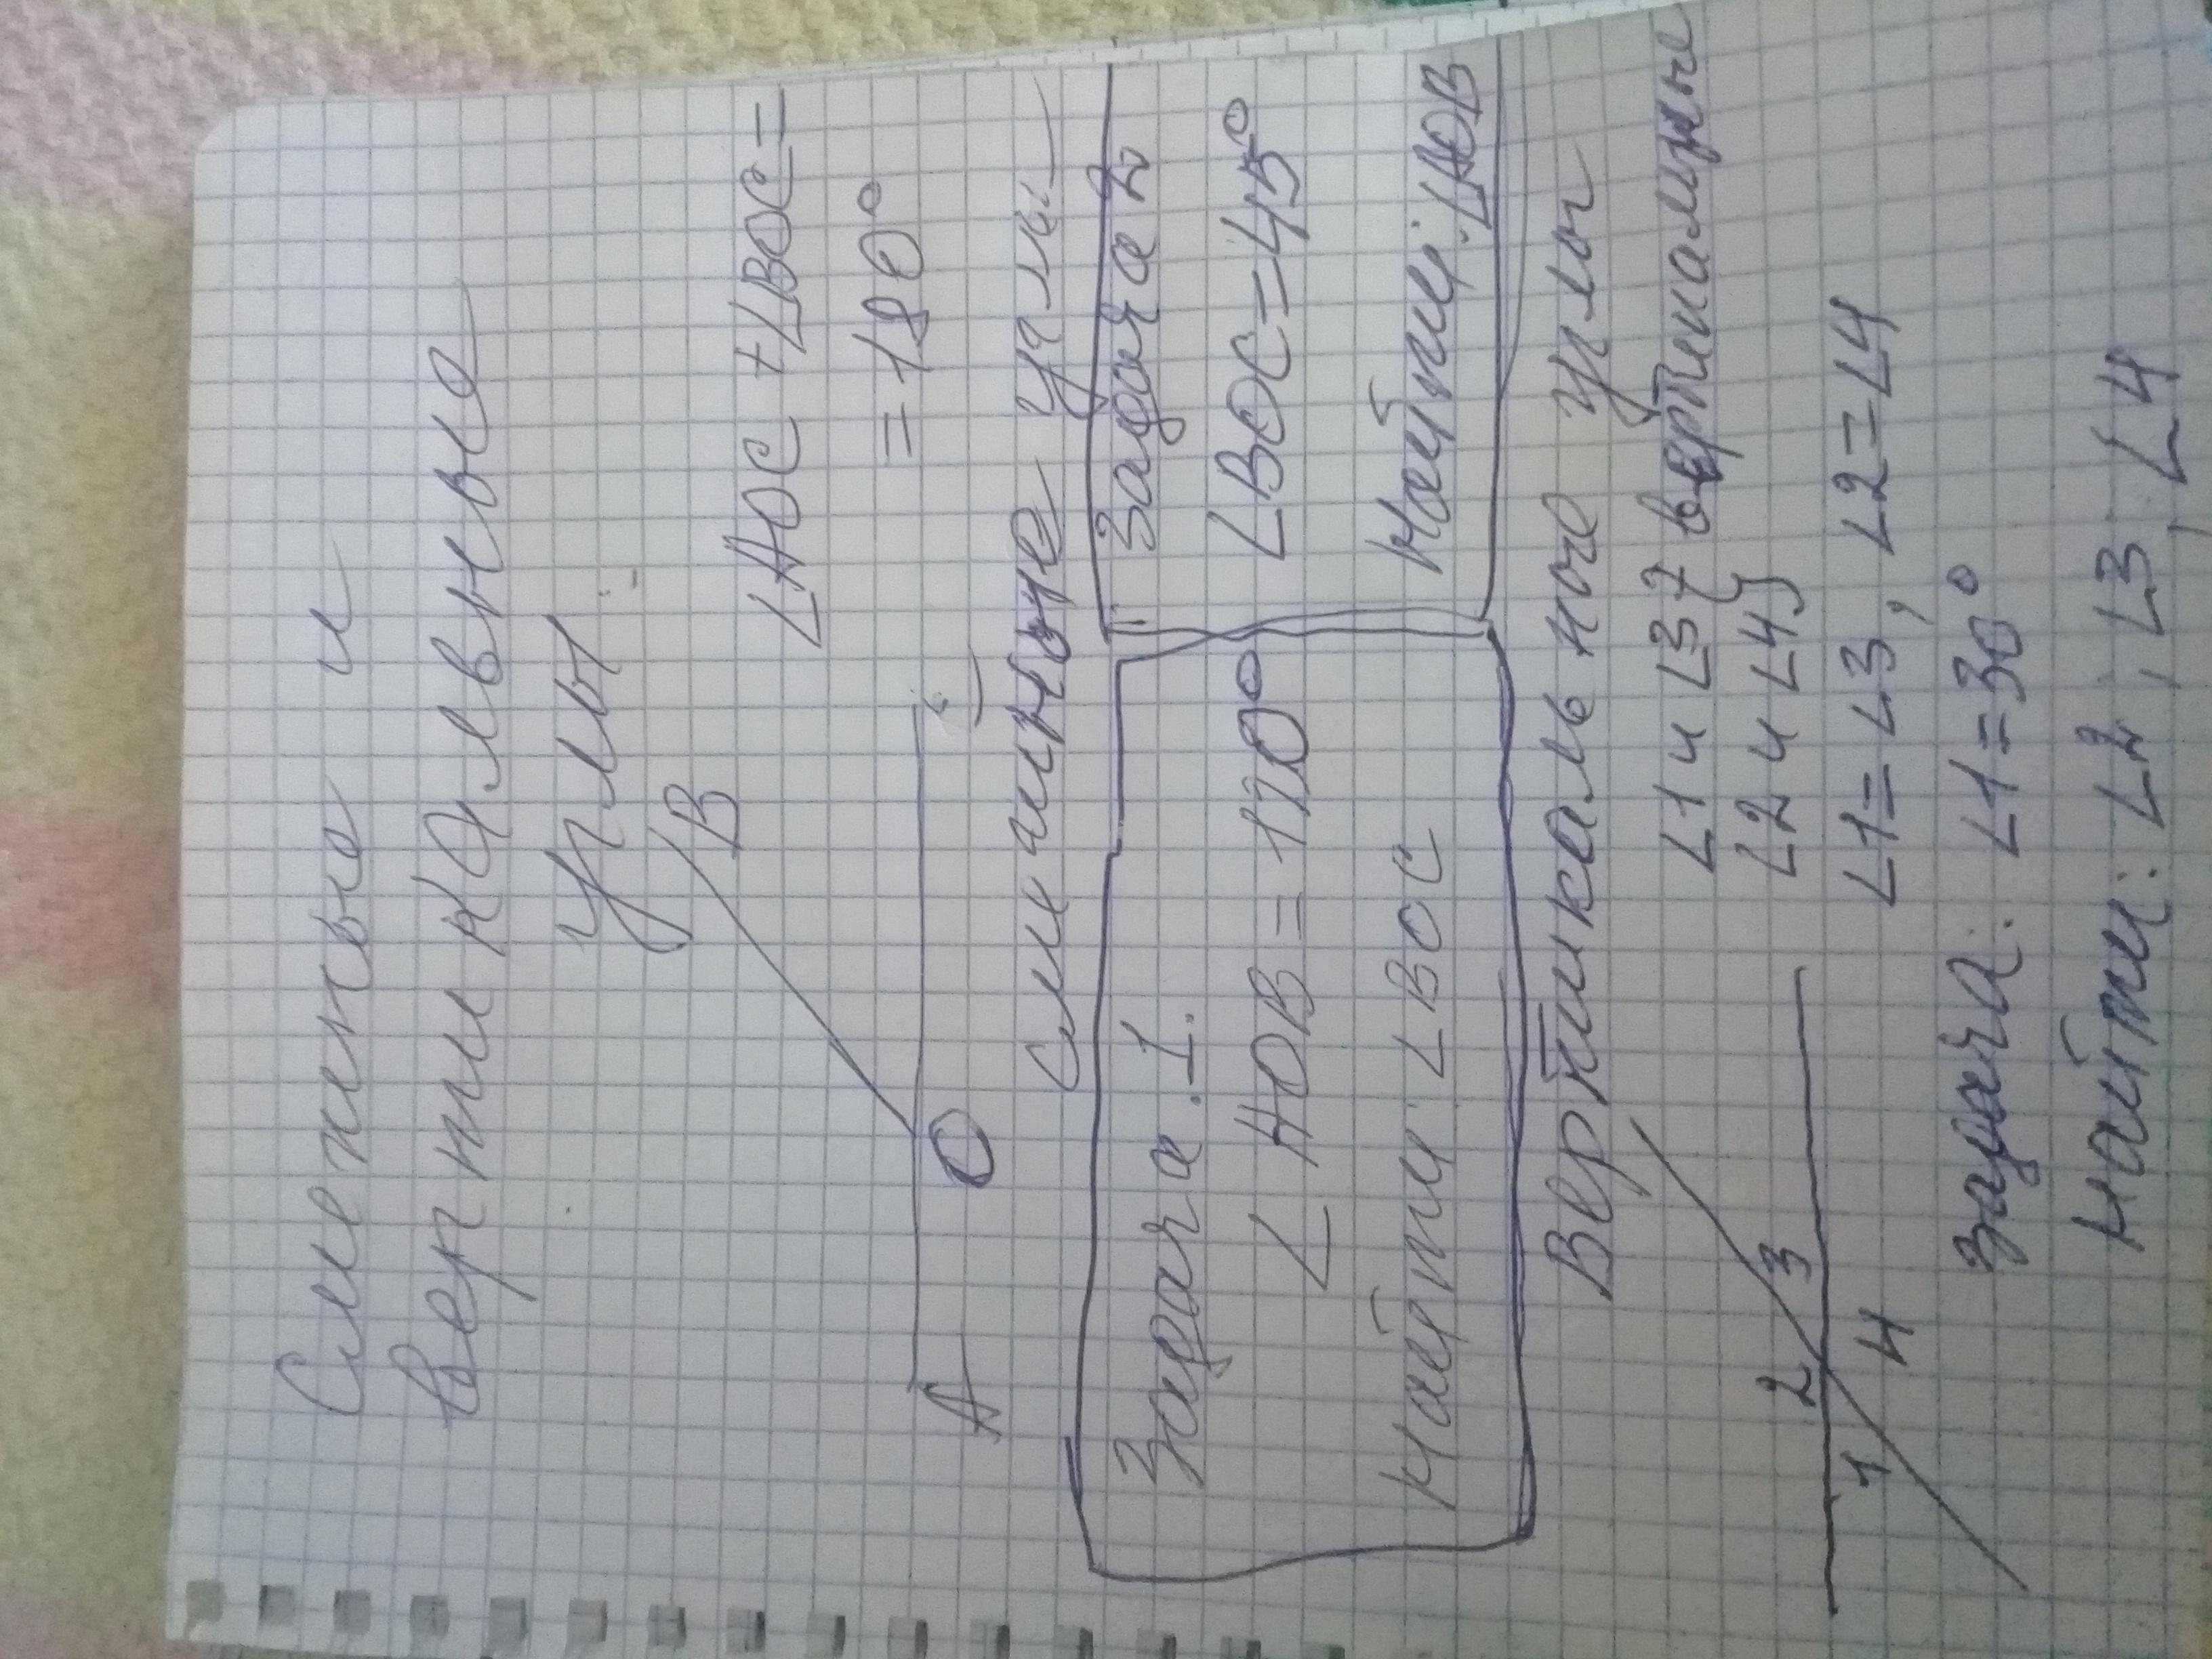 Смежные и
вертикальные
углы.
B
∠AOC + ∠BOC =
= 180°
A
O
C
Смежные углы
Задача 1.
∠AOB = 170°
Найти ∠BOC
Задача 2
∠BOC = 45°
Найти: ∠AOB
Вертикальные углы
2
3
1
4
∠1 и ∠3 } вертикальные
∠2 и ∠4 }
∠1 = ∠3, ∠2 = ∠4
Задача: ∠1 = 30°
Найти: ∠2, ∠3, ∠4